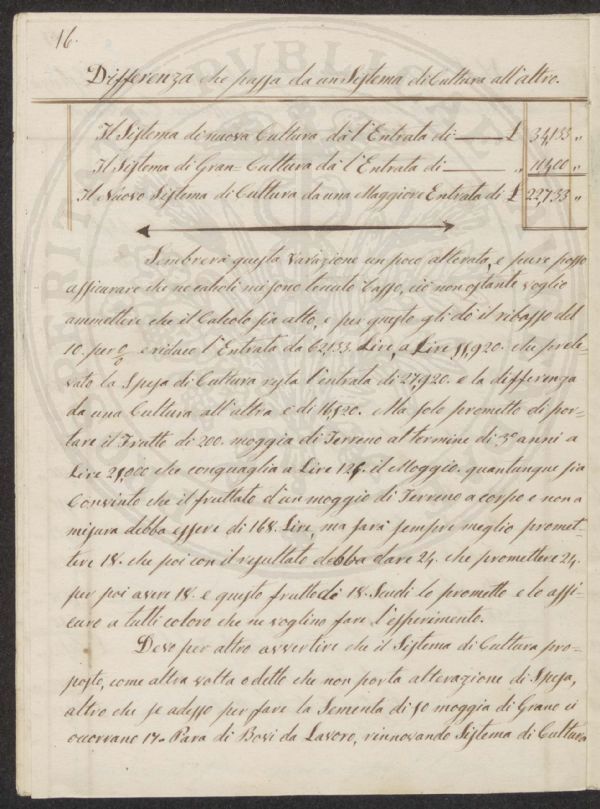 16.
Differenza che passa da un Sistema di Cultura all'altro.
Il Sistema di nuova Cultura dà l'Entrata di £ 34,133 "
Il Sistema di Gran-Cultura dà l'Entrata di " 11,400 "
Il Nuovo Sistema di Cultura da una Maggiore Entrata di £ 22,733 "
Sembrerà questa variazione un poco alterata, e pure posso
assicurare che ne calcoli mi sono tenuto basso, ciò non ostante voglio
ammettere che il Calcolo sia alto, e per questo gli dò il ribasso del
10. per % e riduco l'Entrata da 62,133. Lire, a Lire 55,920. che prele-
vato la Spesa di Cultura resta l'entrata di 27,920. e la differenza
da una Cultura all'altra è di 16,520. Ma solo prometto di por-
tare il Frutto di 200. moggia di Terreno al termine di 3. anni a
Lire 25,000 che conguaglia a Lire 125. il Moggio. quantunque sia
Convinto che il fruttato d'un moggio di Terreno a corpo e non a
misura debba essere di 168. Lire, ma sarà sempre meglio promet-
tere 18. che poi con il resultato debba dare 24. che promettere 24.
per poi avere 18. e questo frutto di 18. Scudi lo prometto e lo assi-
curo a tutti coloro che ne voglino fare l'esperimento.
Devo per altro avvertire che il Sistema di Cultura pro-
posto, come altra volta o detto che non porta alterazione di Spesa,
altro che se adesso per fare la Sementa di 50 moggia di Grano ci
occorvano 17. Para di Bovi da Lavoro, rinnovando Sistema di Cultura